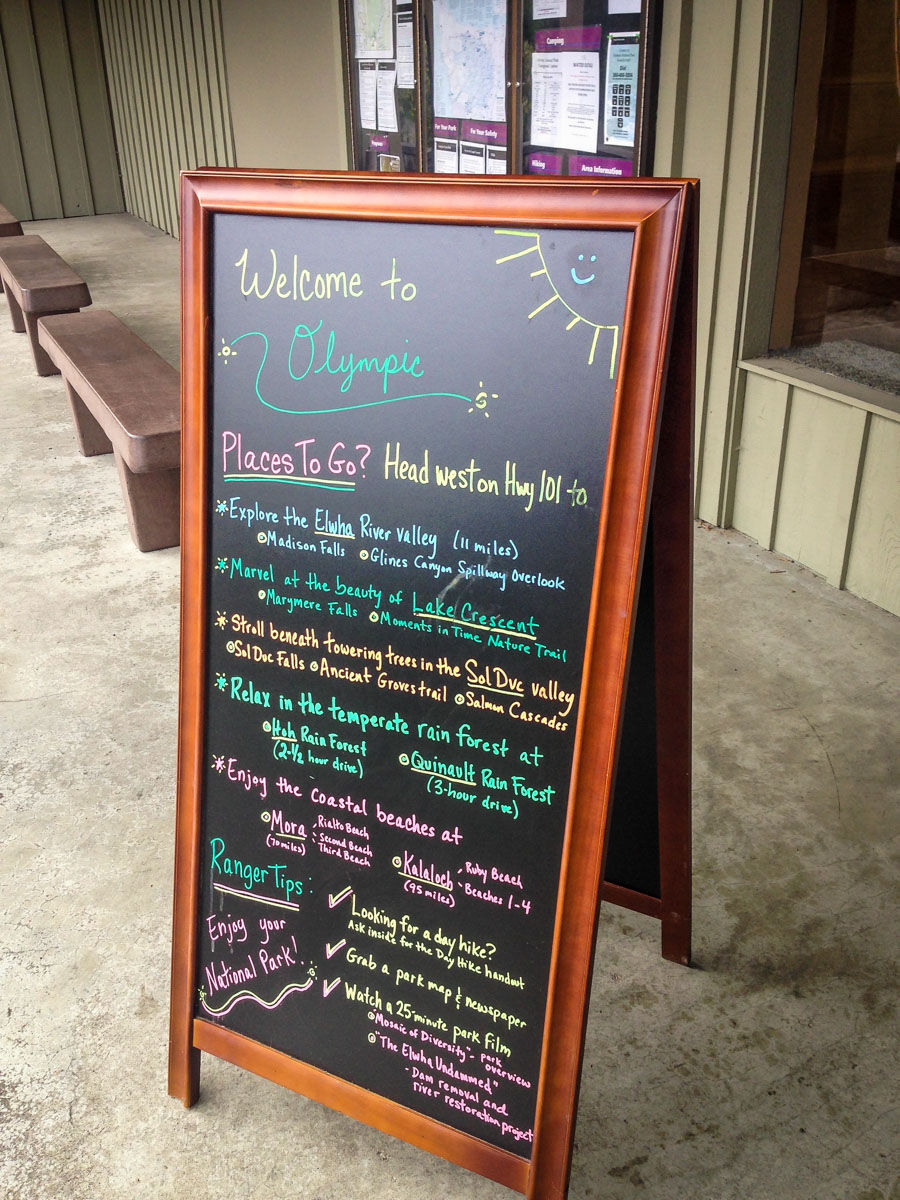 Camping
For Your Park
For Your Safety
Hiking
Area Information
Welcome to
Olympic
Places To Go? Head west on Hwy 101 to
Explore the Elwha River Valley (11 miles)
Madison Falls Glines Canyon Spillway Overlook
Marvel at the beauty of Lake Crescent
Marymere Falls Moments in Time Nature Trail
Stroll beneath towering trees in the Sol Duc valley
Sol Duc Falls Ancient Groves trail Salmon Cascades
Relax in the temperate rain forest at
Hoh Rain Forest
(2-1/2 hour drive)
Quinault Rain Forest
(3-hour drive)
Enjoy the coastal beaches at
Mora
(70 miles)
Rialto Beach
Second Beach
Third Beach
Kalaloch
(95 miles)
Ruby Beach
Beaches 1-4
Ranger Tips:
Enjoy your
National Park!
Looking for a day hike?
Ask inside for the Day Hike handout
Grab a park map & newspaper
Watch a 25-minute park film
"Mosaic of Diversity" - park
overview
"The Elwha Undammed"
- Dam removal and
river restoration project